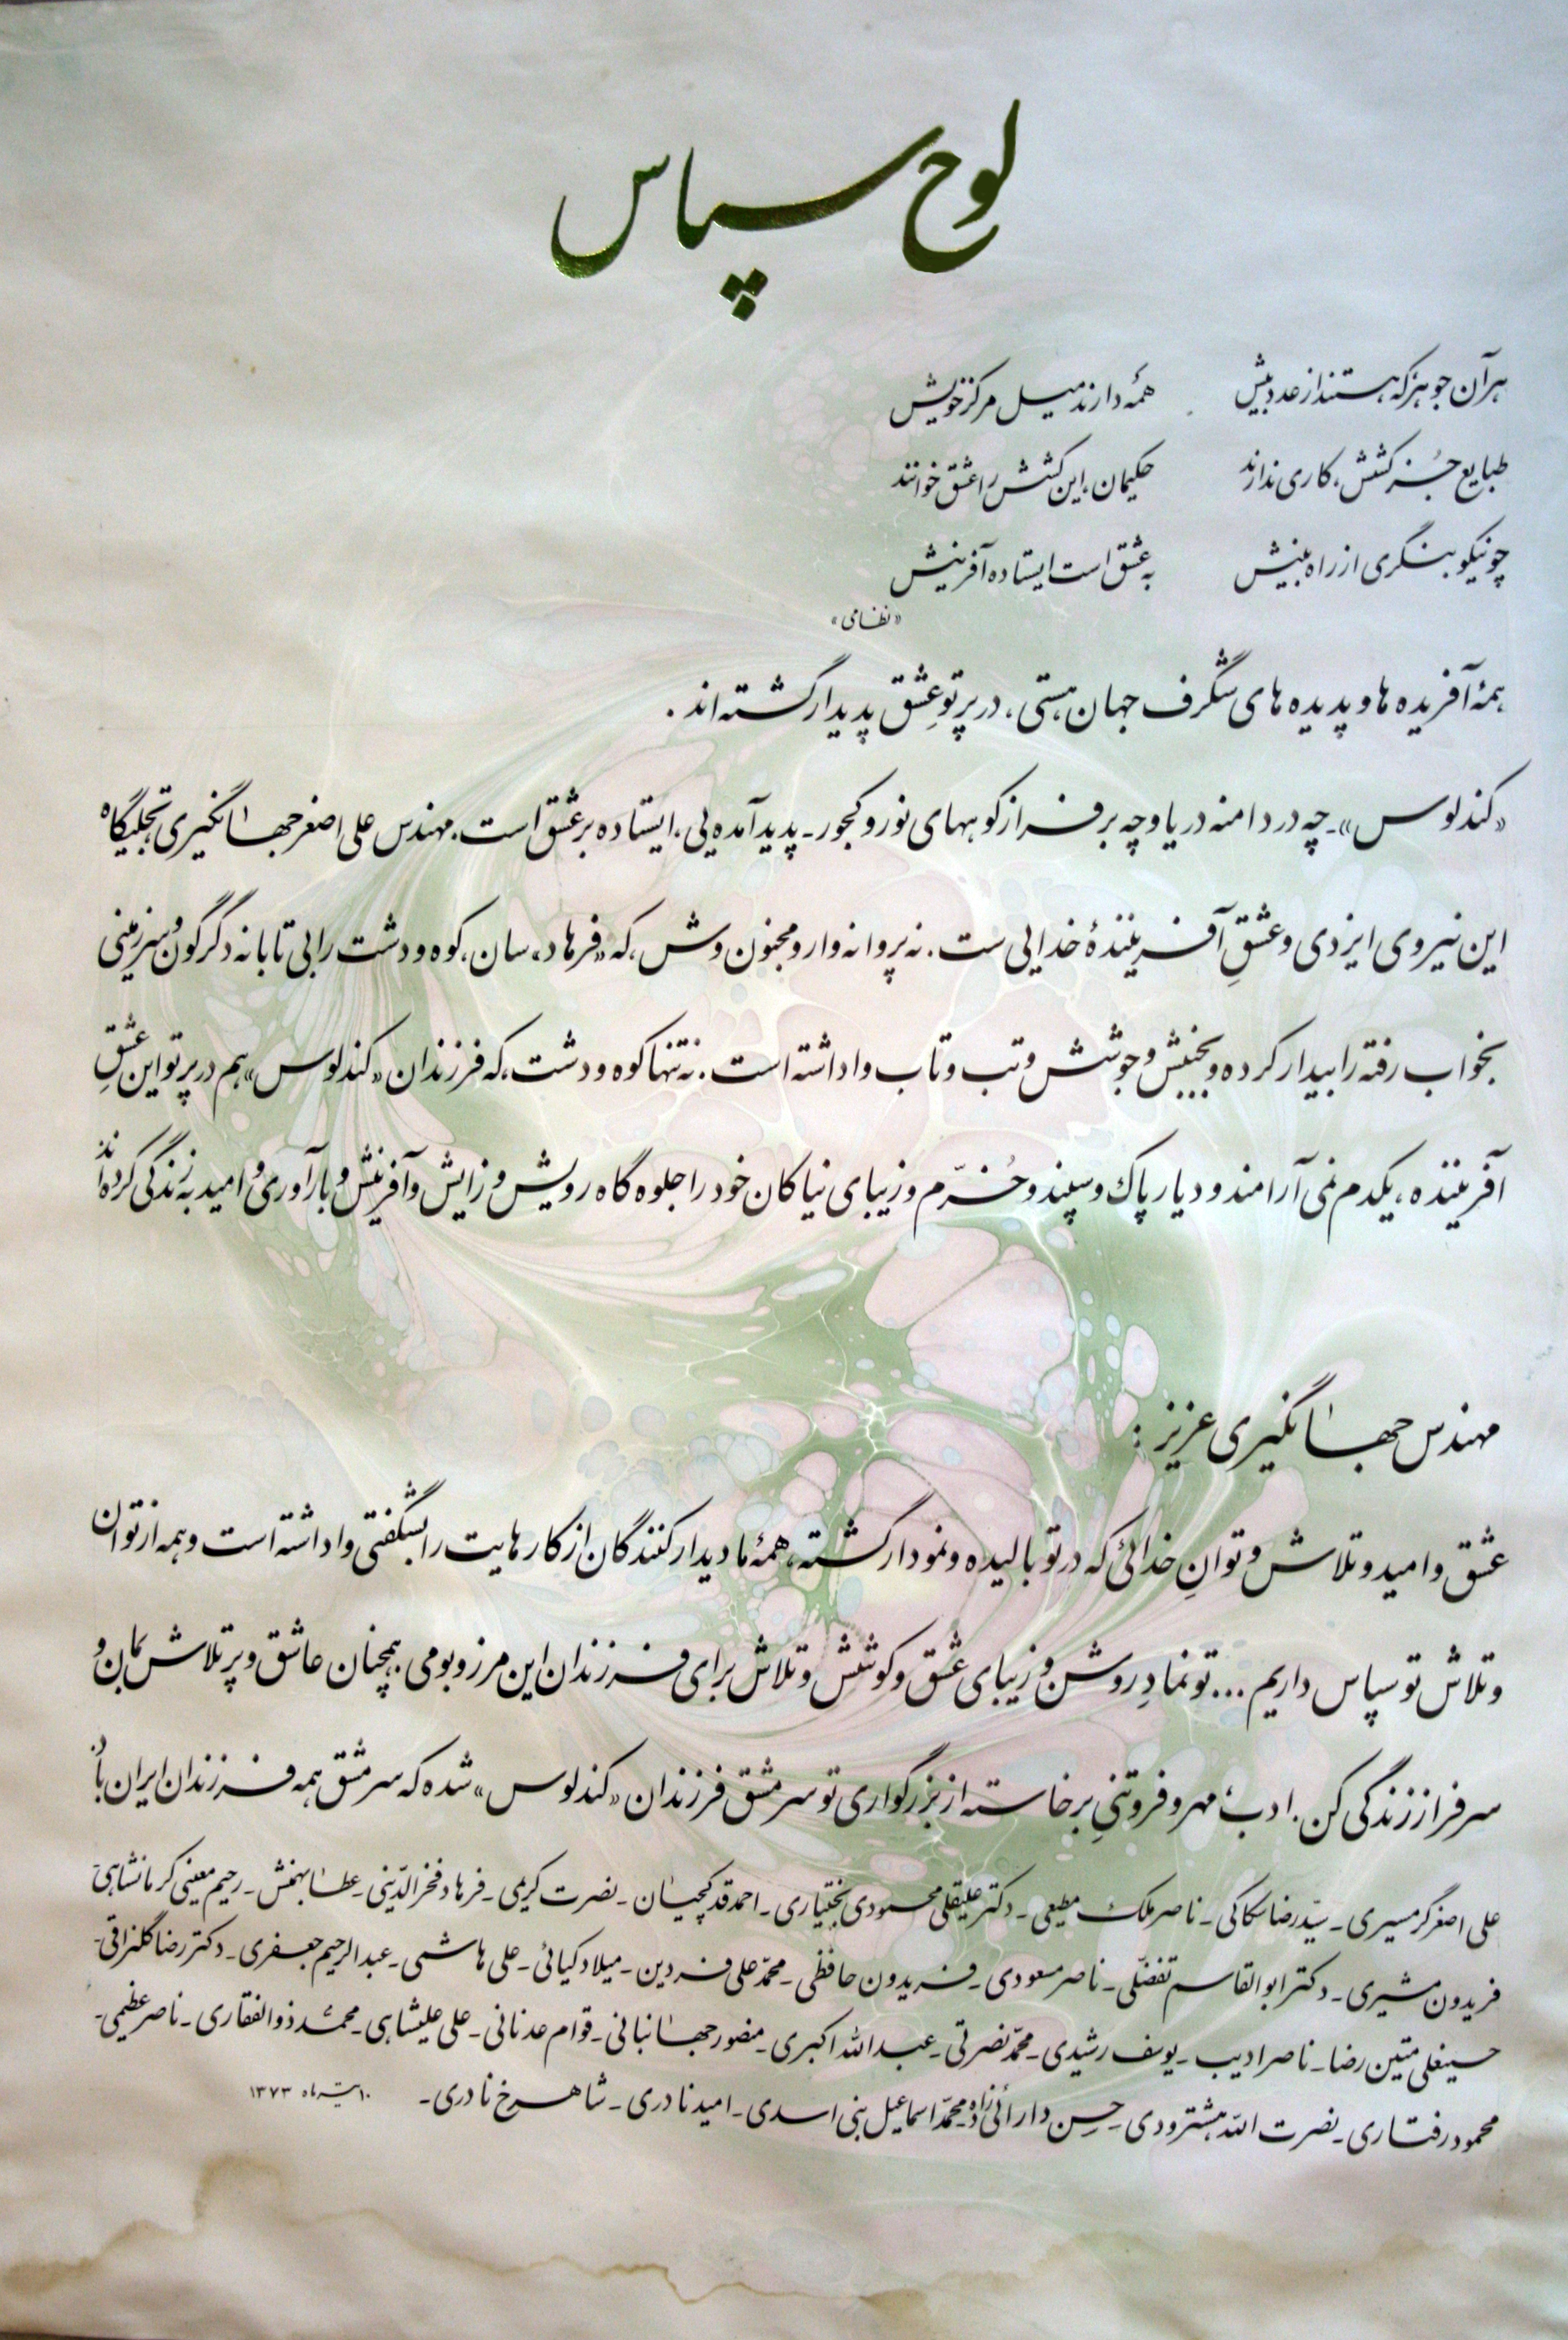 لوح سپاس
هر آن جوهر که هستند از عدد بیش همه دارند میل مرکز خویش
طبایع جُز کشش، کاری ندانند حکیمان، این کشش را عشق خوانند
چو نیکو بنگری از راه بینش به عشق است ایستاده آفرینش
«نظامی»
همهٔ آفریده ها و پدیده های شگرف جهان هستی، در پرتوِ عشق پدیدار گشته اند.
«کندلوس» ـ چه در دامنه دریا و چه بر فراز کوههای نور و کجور ـ پدید آمده یی، ایستاده بر عشق است. مهندس علی اصغر جهانگیری تجلیگاه
این نیروی ایزدی و عشقِ آفرینندهٔ خدایی ست. نه پروانه وار و مجنون وش، که «فرهاد» سان، کوه و دشت را بی تابانه دگرگون و سرزمینی
بخواب رفته را بیدار کرده و بجنبش و جوشش و تب و تاب واداشته است. نه تنها کوه و دشت، که فرزندان «کندلوس» هم در پرتو این عشقِ
آفریننده، یکدم نمی آرامند و دیار پاک و سپند و خُرّم و زیبای نیاکان خود را جلوه گاه رویش و زایش و آفرینش و بارآوری و امید به زندگی کرده اند
مهندس جهانگیری عزیز :
عشق و امید و تلاش و توانِ خدائی که در تو بالیده و نمودار گشته، همهٔ ما دیدارکنندگان از کارهایت را بشگفتی واداشته است و همه از توان
و تلاش تو سپاس داریم ... تو نمادِ روشن و زیبای عشق و کوشش و تلاش برای فرزندان این مرز و بومی. همچنان عاشق و پرتلاش بمان و
سرفراز زندگی کن. ادب، مهر و فروتنیِ برخاسته از بزرگواری تو سرمشق فرزندان «کندلوس» شده که سرمشق همه فرزندان ایران باد.
علی اصغر گرمسیری ـ سیّد رضا سکاکی ـ ناصر ملک مطیعی ـ دکتر علیقلی محمودی بختیاری ـ احمد قدکچیان ـ نصرت کریمی ـ فرهاد فخرالدّینی ـ عطا بهمنش ـ رحیم معینی کرمانشاهی ـ
فریدون مشیری ـ دکتر ابوالقاسم تفضّلی ـ ناصر مسعودی ـ فریدون حافظی ـ محمّد علی فردین ـ میلاد کیائی ـ علی هاشمی ـ عبدالرحیم جعفری ـ دکتر رضا گلنراقی ـ
حسینعلی متین رضا ـ ناصر ادیب ـ یوسف رشیدی ـ محمّد نصرتی ـ عبدالله اکبری ـ منصور جهانبانی ـ قوام عدنانی ـ علی علیشاهی ـ محمّد ذوالفقاری ـ ناصر عظیمی ـ
محمود رفتاری ـ نصرت الله هشترودی ـ حسن دارائی زاده ـ محمّد اسماعیل بنی اسدی ـ امید نادری ـ شاهرخ نادری ـ ۱۰ تیرماه ۱۳۷۳